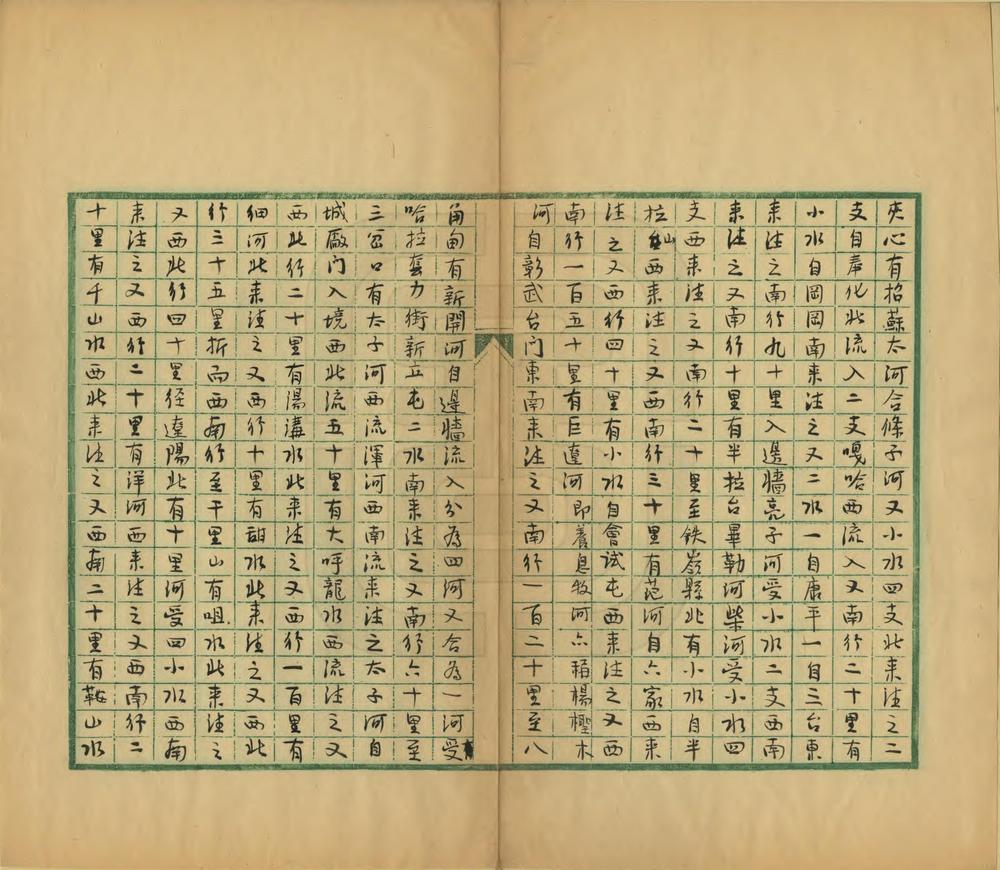 夾心有招蘇太河合條子河又小水四支北来注之二
支自奉化北流入二支嘎哈西流入又南行二十里有
小水自岡岡南来注之又二水一自康平一自三台東
来注之南行九十里入邊牆亮子河受小水二支西南
来注之又南行十里有半拉台畢勒河柴河受小水四
支西来注之又南行二十里至鉄嶺縣北有小水自半
拉山西来注之又西南行三十里有范河自六家西来
注之又西行四十里有小水自會試屯西来注之又西
南行一百五十里有巨遼河即養息牧河亦稱楊檉木
河自彰武台门東南来注之又南行一百二十里至八
角甸有新開河自邊牆流入分為四河又合為一河受
哈拉套力街新立屯二水南来注之又南行六十里至
三岔口有太子河西流渾河西南流来注之太子河自
城廠门入境西北流五十里有大呼龍水西流注之又
西北行二十里有湯溝水北来注之又西行一百里有
細河北来注之又西行十里有甜水北来注之又西北
行三十五里折而西南行至千里山有咀水北来注之
又西北行四十里径遼陽北有十里河受四小水西南
来注之又西行二十里有洋河西来注之又西南行二
十里有千山水西北来注之又西南二十里有鞍山水